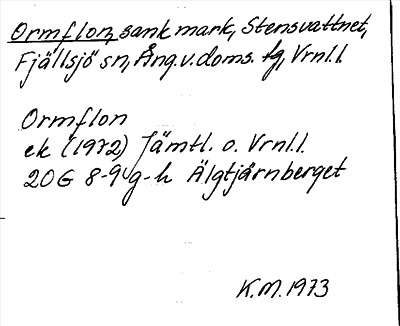 Ormflon, sank mark, Stensvattnet,
Fjällsjö sn, Ång.v.doms. tg, Vrnl.l
Ormflon
ek (1972) Jämtl. o. Vrnl.l.
20G 8-9 g-h Älgtjärnberget
K.M. 1973